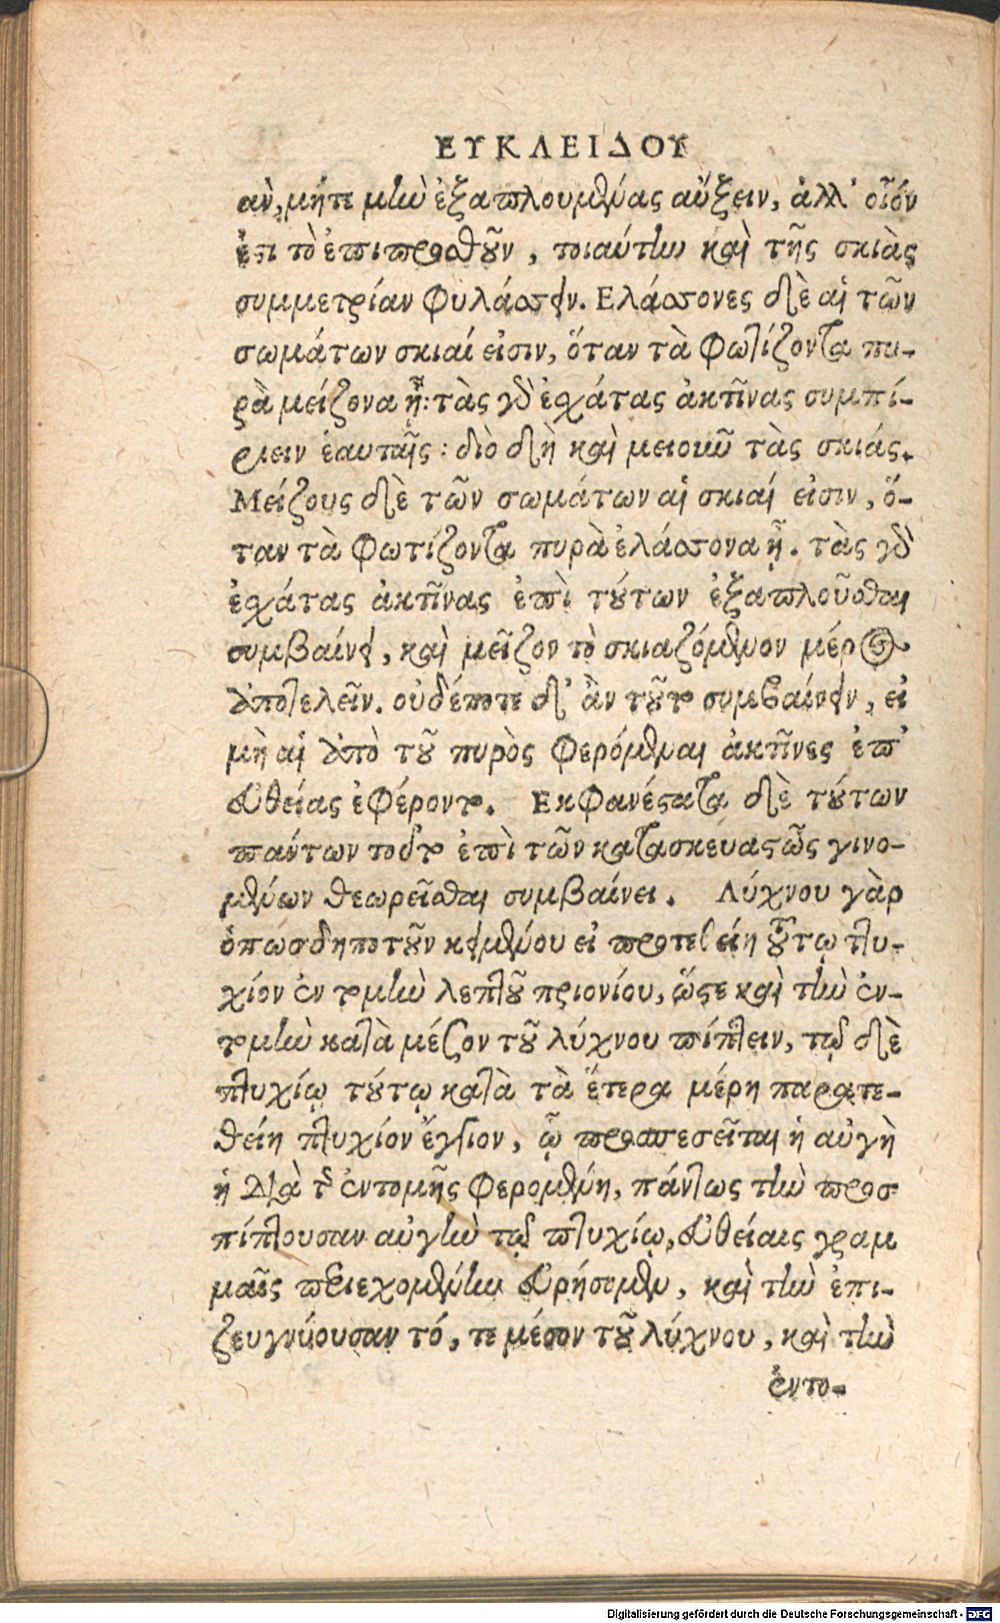 ΕΥΚΛΕΙΔΟΥ
αν, μήτε μὴν ἐξαπλουμένας αὔξειν, ἀλλ' οἷόν
ἐπι τὸ ἐπιπροσθοῦν, τοιαύτην καὶ τῆς σκιὰς
συμμετρίαν φυλάσσειν. Ελάσσονες δὲ αἱ τῶν
σωμάτων σκιαί εἰσιν, ὅταν τὰ φωτίζοντα πυ-
ρὰ μείζονα ᾖ: τὰς γὸ ἐσχάτας ἀκτῖνας συμπί-
ειν ἑαυταῖς: διὸ δὴ καὶ μειοῦν τὰς σκιάς.
Μείζους δὲ τῶν σωμάτων αἱ σκιαί εἰσιν, ὅ-
ταν τὰ φωτίζοντα πυρὰ ἐλάσσονα ᾖ. τὰς γὸ
ἐσχάτας ἀκτῖνας ἐπὶ τούτων ἐξαπλοῦσθαι
συμβαίνει, καὶ μεῖζον τὸ σκιαζόμενον μέρος
ἀποτελεῖν. οὐδέποτε δ' ἂν τοῦτο συμβαίνειν, εἰ
μὴ αἱ ἀπὸ τοῦ πυρὸς φερόμεναι ἀκτῖνες ἐπ'
εὐθείας ἐφέροντο. Εκφανέστατα δὲ τούτων
πάντων τοῦτο ἐπὶ τῶν κατασκευαστῶς γινο-
μένων θεωρεῖσθαι συμβαίνει. Λύχνου γὰρ
ὁπωσδηποτοῦν κειμένου εἰ προτεθείη τούτῳ πτυ-
χίον ἐντομὴν λεπτοῦ πριονίου, ὥστε καὶ τὴν ἐν-
τομὴν κατὰ μέσον τοῦ λύχνου πίπτειν, τῷ δὲ
πτυχίῳ τούτῳ κατὰ τὰ ἕτερα μέρη παρατε-
θείη πτυχίον ἔγγιον, ᾧ προσπεσεῖται ἡ αὐγὴ
ἡ διὰ τῆς ἐντομῆς φερομένη, πάντως τὴν προσ
πίπτουσαν αὐγὴν τῷ πτυχίῳ, εὐθείαις γραμ
μαῖς περιεχομένην εὑρήσομεν, καὶ τὴν ἐπι-
ζευγνύουσαν τό, τε μέσον τοῦ λύχνου, καὶ τὴν
ἐντο-
Digitalisierung gefördert durch die Deutsche Forschungsgemeinschaft - DFG